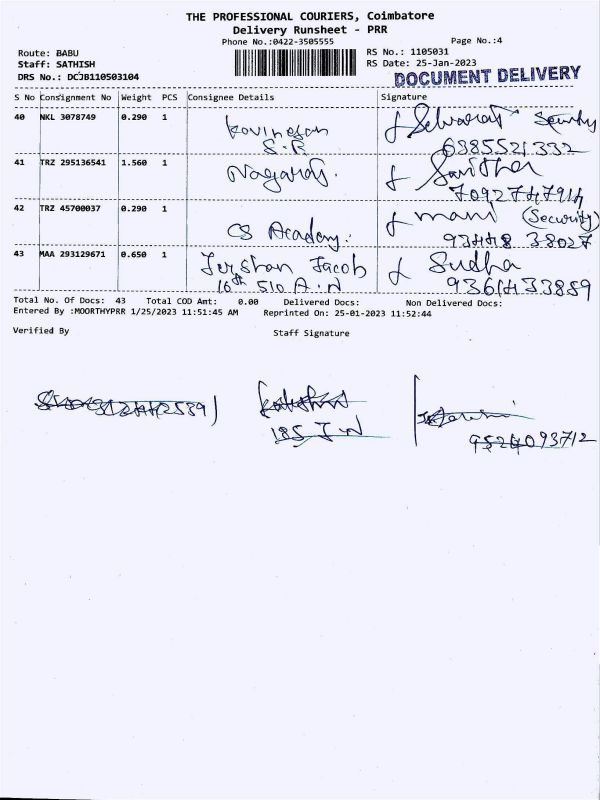 THE PROFESSIONAL COURIERS, Coimbatore
Delivery Runsheet - PRR
Phone No.:0422-3505555 Page No.:4
Route: BABU RS No.: 1105031
Staff: SATHISH RS Date: 25-Jan-2023
DRS No.: DCJB110503104 DOCUMENT DELIVERY
S No Consignment No Weight PCS Consignee Details Signature
40 NKL 3078749 0.290 1 Kovinesan Selvaraj Security
S.R 6385521332
41 TRZ 295136541 1.560 1 Nagaraj. Savitha
7092747914
42 TRZ 45700037 0.290 1 CS Academy. mani (Security)
93448 38027
43 MAA 293129671 0.650 1 Jershan Jacob Sudha
16th 510 A.N 9361433859
Total No. Of Docs: 43 Total COD Amt: 0.00 Delivered Docs: Non Delivered Docs:
Entered By :MOORTHYPRR 1/25/2023 11:51:45 AM Reprinted On: 25-01-2023 11:52:44
Verified By Staff Signature
185 J.N
9524093712